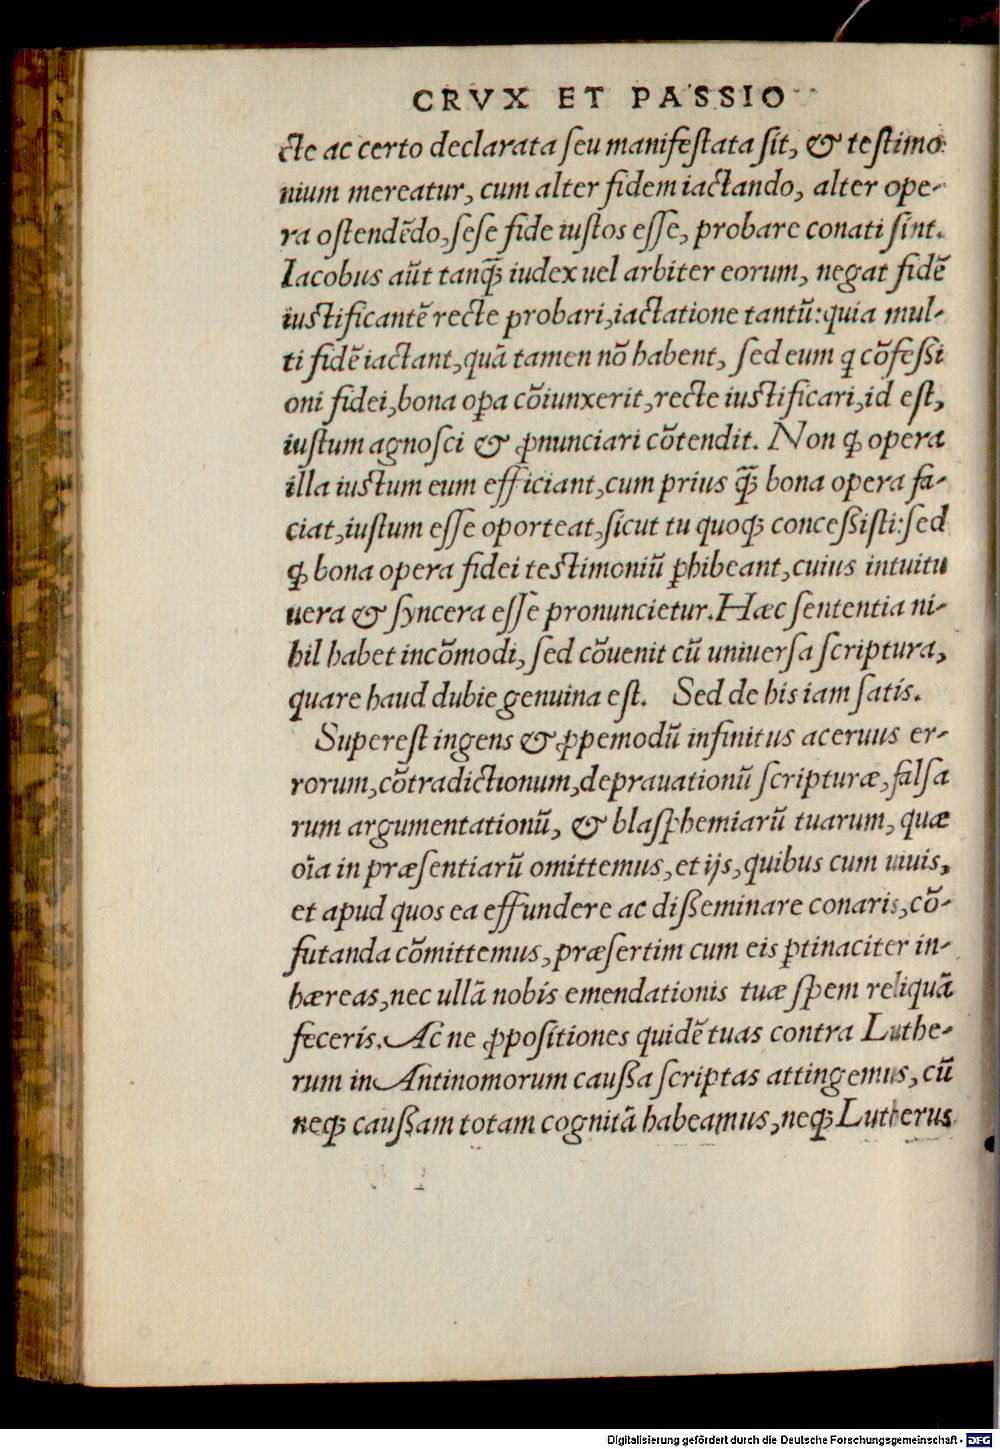 CRVX ET PASSIO
cte ac certo declarata ſeu manifeſtata ſit, & teſtimo
nium mereatur, cum alter fidem iactando, alter ope-
ra oſtendēdo, ſeſe fide iuſtos eſſe, probare conati ſint.
Iacobus aūt tanq̃ iudex uel arbiter eorum, negat fidē
iuſtificantē recte probari, iactatione tantū: quia mul-
ti fidē iactant, quā tamen nō habent, ſed eum q cōfeßi
oni fidei, bona oꝑa cōiunxerit, recte iuſtificari, id eſt,
iuſtum agnoſci & ꝓnunciari cōtendit. Non ꝙ opera
illa iuſtum eum efficiant, cum prius q̃ꝫ bona opera fa-
ciat, iuſtum eſſe oporteat, ſicut tu quoqꝫ conceßiſti: ſed
ꝙ bona opera fidei teſtimoniū ꝑhibeant, cuius intuitu
uera & ſyncera eſſe pronuncietur. Hæc ſententia ni-
hil habet incōmodi, ſed cōuenit cū uniuerſa ſcriptura,
quare haud dubie genuina eſt. Sed de his iam ſatis.
Supereſt ingens & ꝓpemodū infinitus aceruus er-
rorum, cōtradictionum, deprauationū ſcripturæ, falſa
rum argumentationū, & blaſphemiarū tuarum, quæ
oīa in præſentiarū omittemus, et ijs, quibus cum uiuis,
et apud quos ea effundere ac dißeminare conaris, cō-
futanda cōmittemus, præſertim cum eis ꝑtinaciter in-
hæreas, nec ullā nobis emendationis tuæ ſpem reliquā
feceris. Ac ne ꝓpoſitiones quidē tuas contra Luthe-
rum in Antinomorum caußa ſcriptas attingemus, cū
neqꝫ caußam totam cognitā habeamus, neqꝫ Lutherus
Digitalisierung gefördert durch die Deutsche Forschungsgemeinschaft - DFG